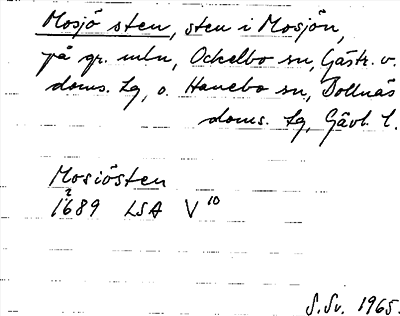 Mosjö sten, sten i Mosjön,
på gr. mln, Ockelbo sn, Gästr. v.
doms. Lg, o. Hanebo sn, Bollnäs
doms. Lg, Gävl. l.
Mosiösten
?
1689 LSA V 10
S.Sv. 1965.